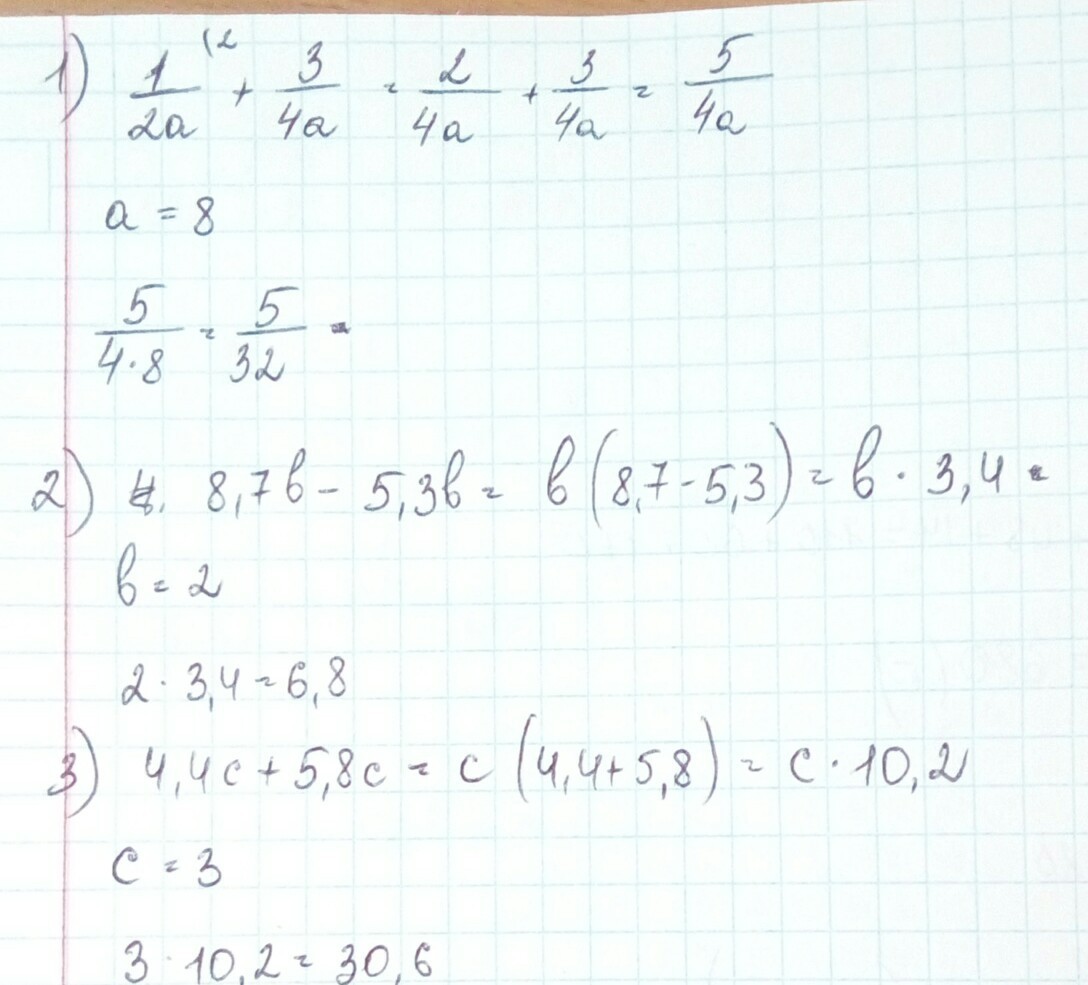 1) 1/2a (2 + 3/4a = 2/4a + 3/4a = 5/4a
a = 8
5/4·8 = 5/32
2) 8,7в - 5,3в = в (8,7-5,3) = в · 3,4
в = 2
2 · 3,4 = 6,8
3) 4,4c + 5,8c = c (4,4+5,8) = c · 10,2
c = 3
3 · 10,2 = 30,6